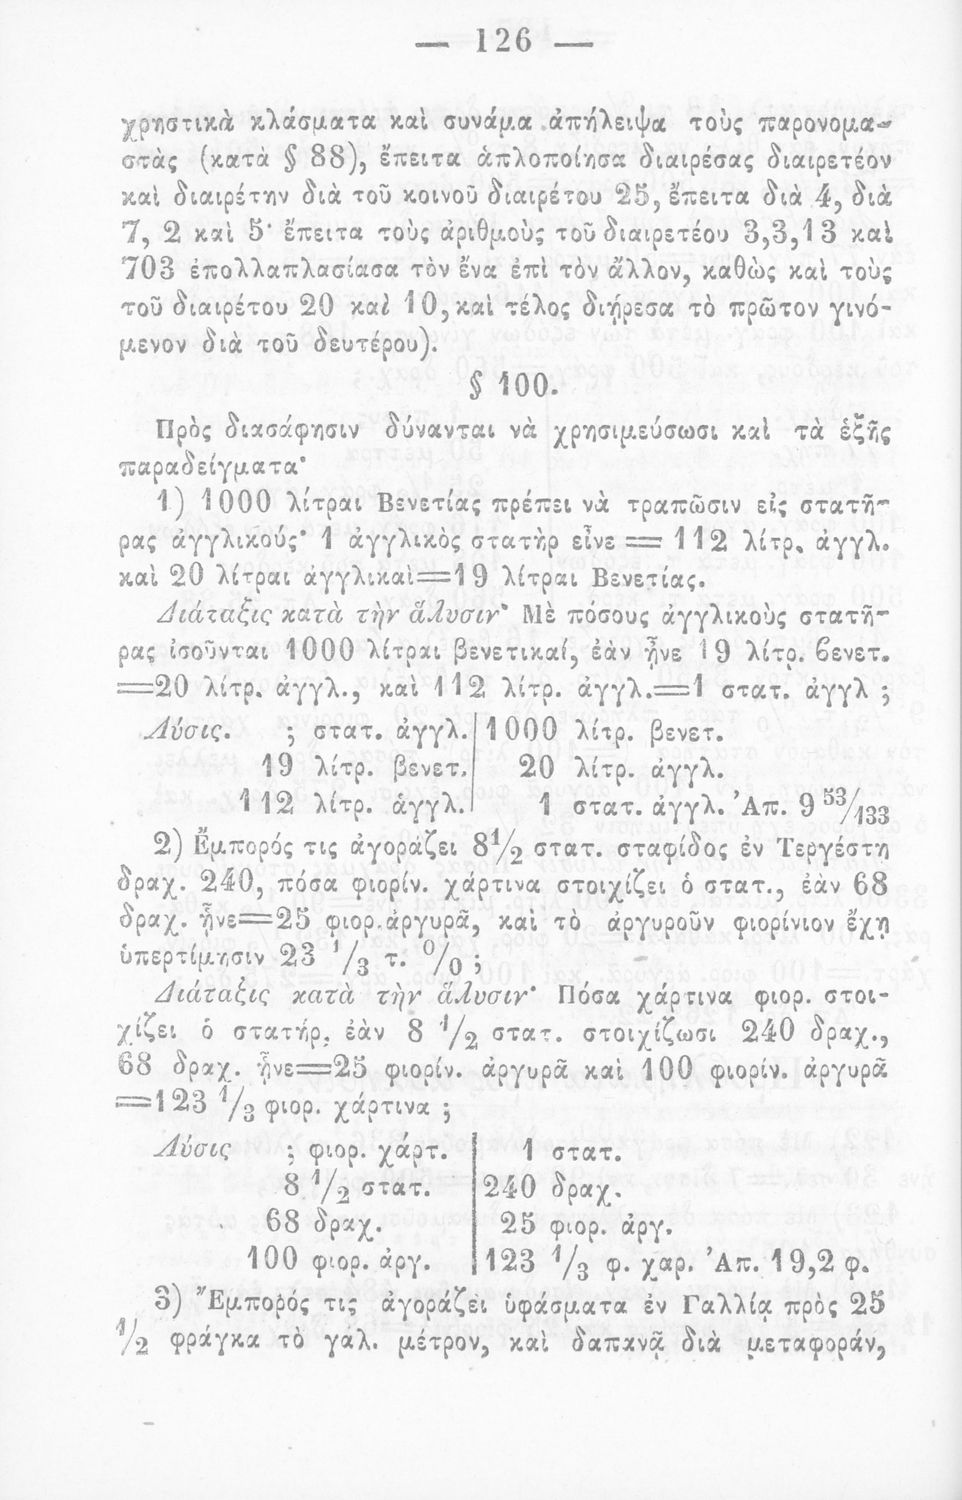 — 126 —
χρηστικὰ κλάσματα καὶ συνάμα ἀπήλειψα τοὺς παρονομα-
στὰς (κατὰ § 88), ἔπειτα ἁπλοποίησα διαιρέσας διαιρετέον
καὶ διαιρέτην διὰ τοῦ κοινοῦ διαιρέτου 25, ἔπειτα διὰ 4, διὰ
7, 2 καὶ 5· ἔπειτα τοὺς ἀριθμοὺς τοῦ διαιρετέου 3,3,13 καὶ
703 ἐπολλαπλασίασα τὸν ἕνα ἐπὶ τὸν ἄλλον, καθὼς καὶ τοὺς
τοῦ διαιρέτου 20 καὶ 10, καὶ τέλος διῄρεσα τὸ πρῶτον γινό-
μενον διὰ τοῦ δευτέρου).
§ 100.
Πρὸς διασάφησιν δύνανται νὰ χρησιμεύσωσι καὶ τὰ ἑξῆς
παραδείγματα·
1) 1000 λίτραι Βενετίας πρέπει νὰ τραπῶσιν εἰς στατῆ-
ρας ἀγγλικούς· 1 ἀγγλικὸς στατὴρ εἶνε = 112 λίτρ. ἀγγλ.
καὶ 20 λίτραι ἀγγλικαὶ=19 λίτραι Βενετίας.
Διάταξις κατὰ τὴν ἅλυσιν· Μὲ πόσους ἀγγλικοὺς στατῆ-
ρας ἰσοῦνται 1000 λίτραι βενετικαί, ἐὰν ἦνε 19 λίτρ. βενετ.
=20 λίτρ. ἀγγλ., καὶ 112 λίτρ. ἀγγλ.=1 στατ. ἀγγλ ;
Λύσις. ; στατ. ἀγγλ. | 1000 λίτρ. βενετ.
19 λίτρ. βενετ. | 20 λίτρ. ἀγγλ.
112 λίτρ. ἀγγλ. | 1 στατ. ἀγγλ. Ἀπ. 9 53/133
2) Ἔμπορός τις ἀγοράζει 8 1/2 στατ. σταφίδος ἐν Τεργέστῃ
δραχ. 240, πόσα φιορίν. χάρτινα στοιχίζει ὁ στατ., ἐὰν 68
δραχ. ἦνε=25 φιορ. ἀργυρᾶ, καὶ τὸ ἀργυροῦν φιορίνιον ἔχῃ
ὑπερτίμησιν 23 1/3 τ. 0/0 ;
Διάταξις κατὰ τὴν ἅλυσιν· Πόσα χάρτινα φιορ. στοι-
χίζει ὁ στατήρ, ἐὰν 8 1/2 στατ. στοιχίζωσι 240 δραχ.,
68 δραχ. ἦνε=25 φιορίν. ἀργυρᾶ καὶ 100 φιορίν. ἀργυρᾶ
=123 1/3 φιορ. χάρτινα ;
Λύσις ; φιορ. χάρτ. | 1 στατ.
8 1/2 στατ. | 240 δραχ.
68 δραχ. | 25 φιορ. ἀργ.
100 φιορ. ἀργ. | 123 1/3 φ. χαρ. Ἀπ. 19,2 φ.
3) Ἔμπορός τις ἀγοράζει ὑφάσματα ἐν Γαλλίᾳ πρὸς 25
1/2 φράγκα τὸ γαλ. μέτρον, καὶ δαπανᾷ διὰ μεταφοράν,